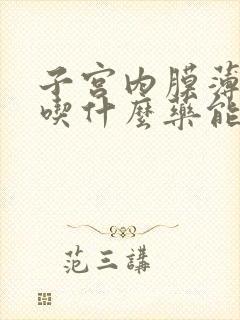 子宫内膜薄
喫什麼藥能
范三講